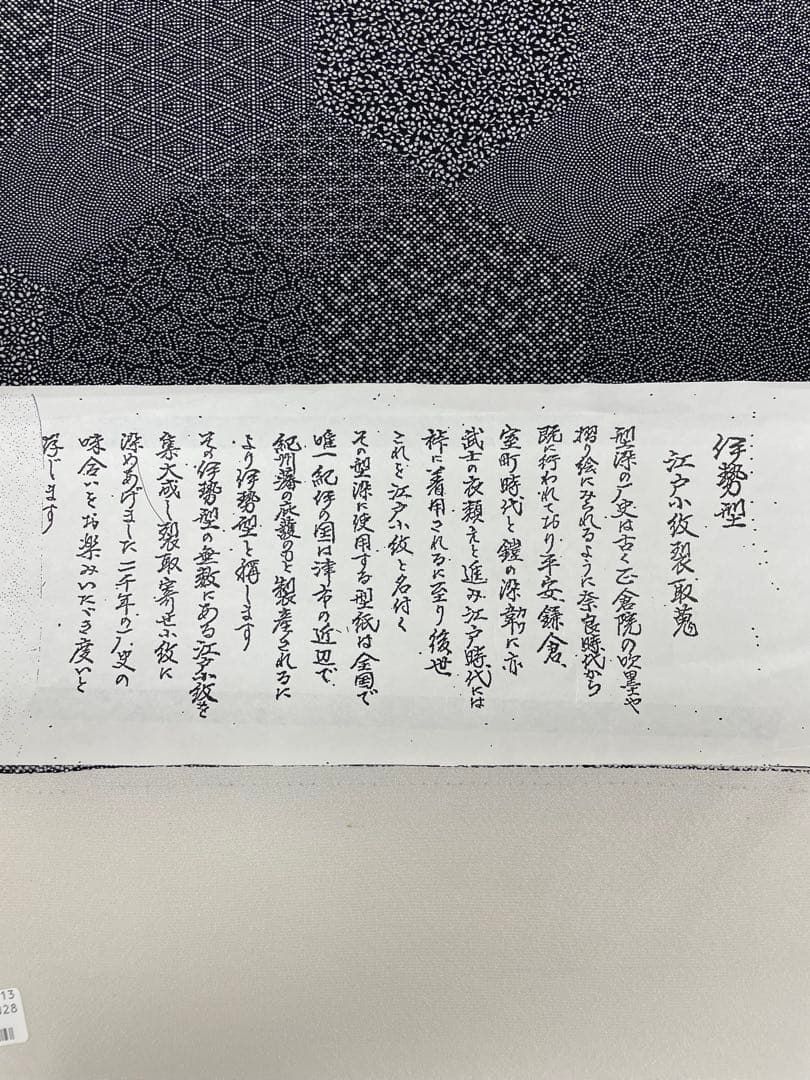 伊勢型
江戸小紋裂取蒐
型染の歴史は古く正倉院の吹墨や
摺り絵にみられるように奈良時代から
既に行われており平安、鎌倉、
室町時代と鎧の染韋に亦
武士の衣類えと進み江戸時代には
裃に着用されるに至り後世
これを江戸小紋と名付く
その型染に使用する型紙は全国で
唯一紀伊の国は津市の近辺で
紀州藩の庇護のもと製産されるに
より伊勢型と稱します
その伊勢型の無数にある江戸小紋を
集大成し裂取寄せ小紋に
染めあげました二千年の歴史の
味合いをお楽みいたゞき度いと
存じます
13
028